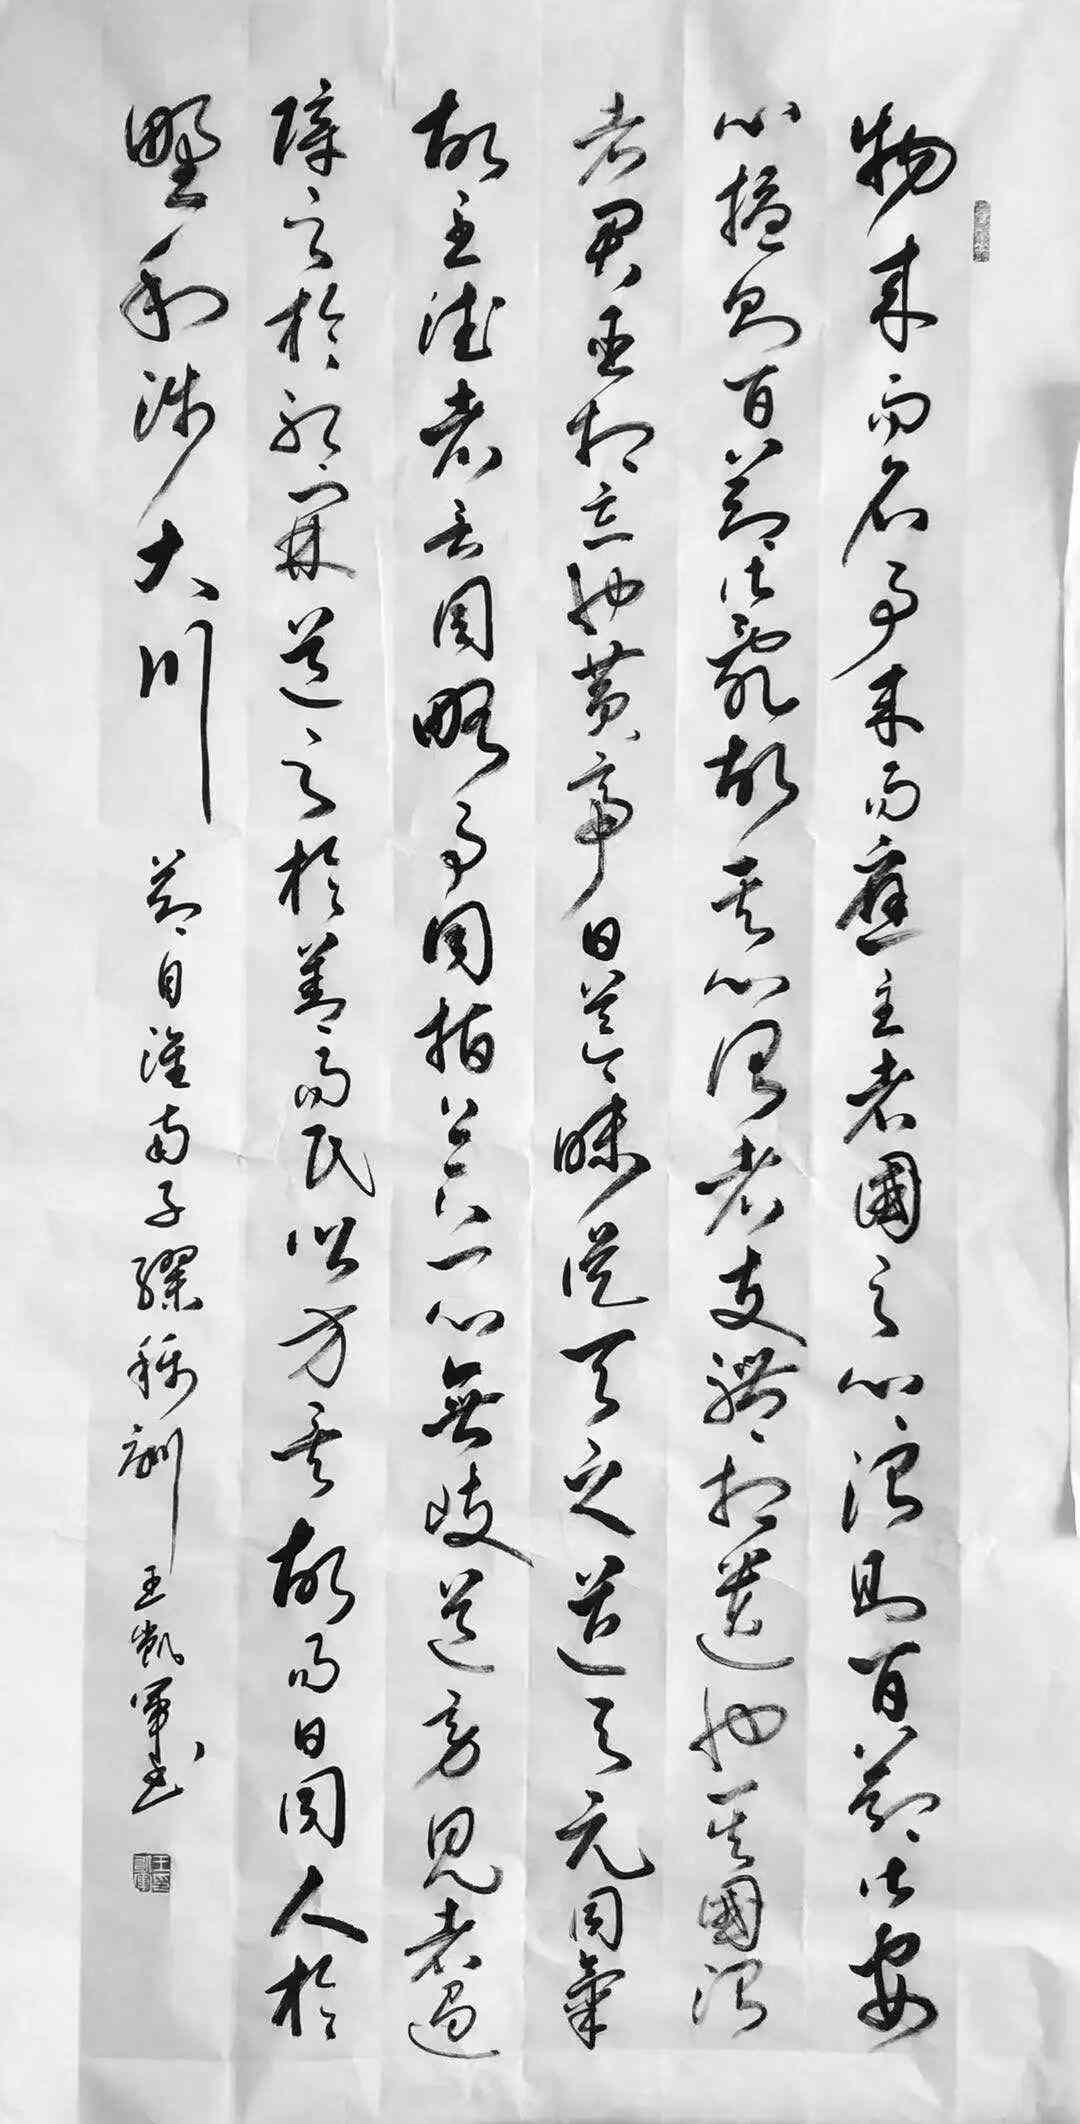 物來而名事來而應主者國之心治則百節皆安
心擾則百節皆亂故其心治者支體相遺也其國治
者君臣相忘也黃帝曰芒昧從天之道與元同氣
故至德者言同略事同指上下一心無歧道旁見者遏
障之於邪開道之於善而民鄉方矣故易曰同人於
野利涉大川 節自淮南子繆稱訓 王凱軍書